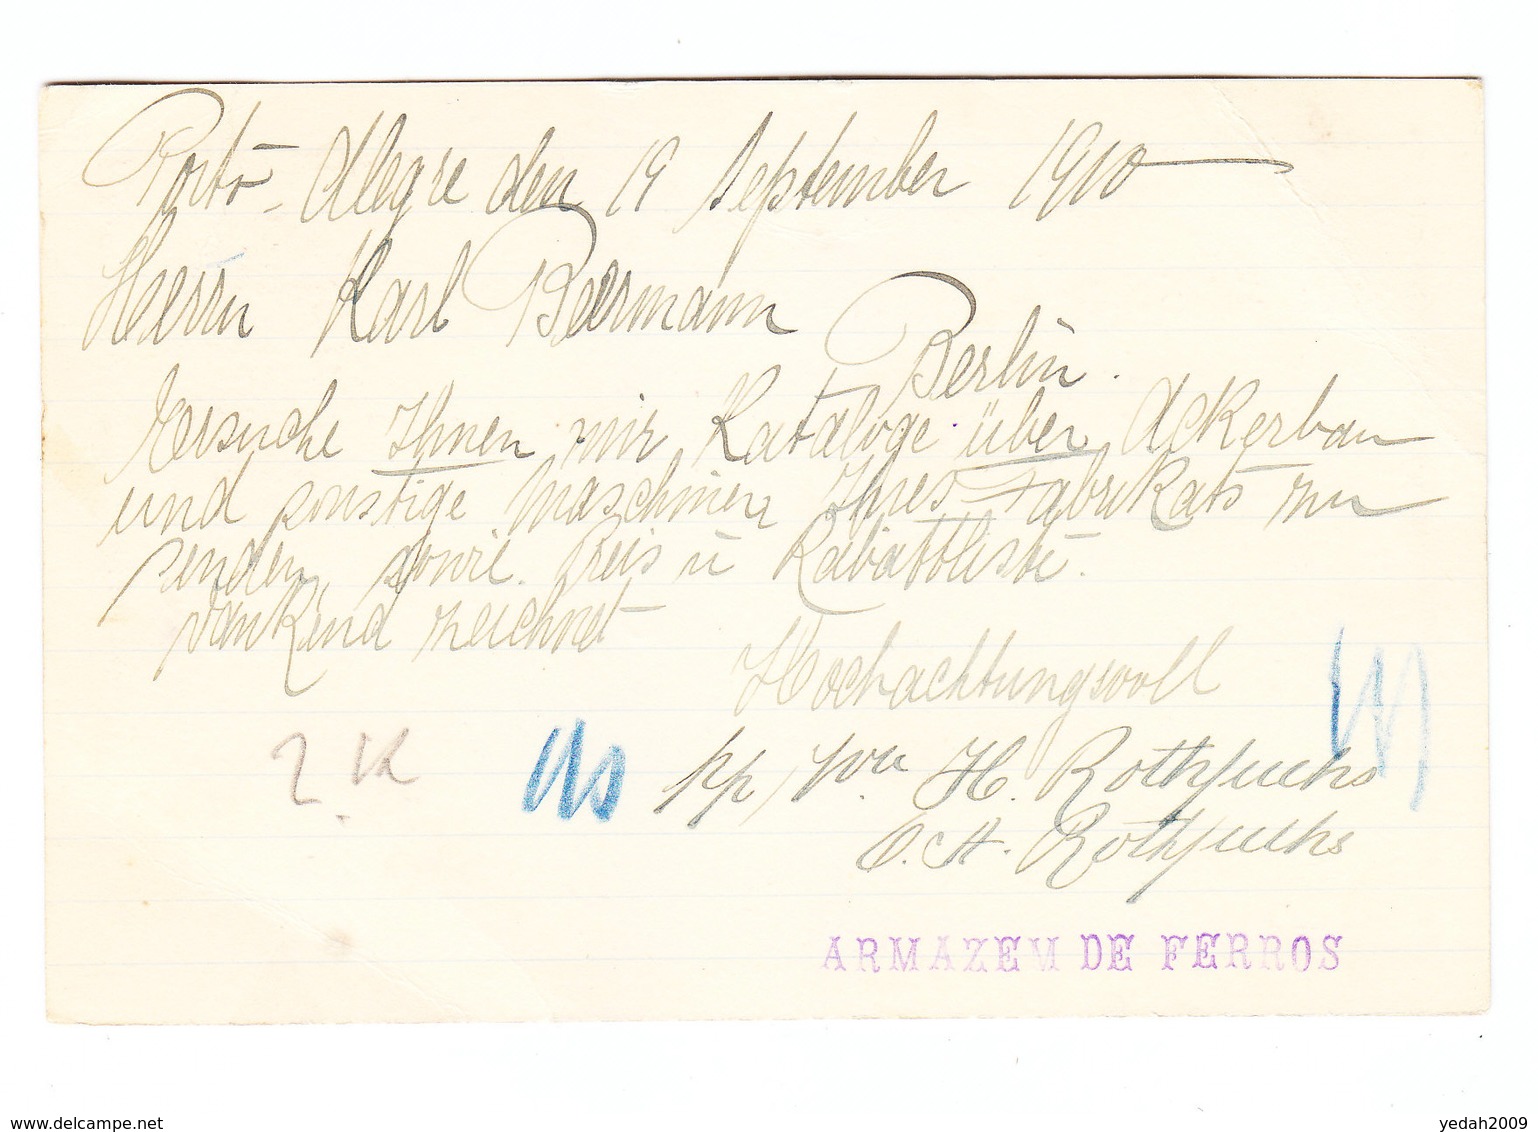 Porto-Alegre den 19 September 1910
Herrn Karl Beermann
Berlin.
Ersuche Ihnen mir Kataloge über Ackerbau
und sonstige Maschinen Ihres Fabrikats zu
senden, sowie Preis u Rabattliste.
dankend zeichnet
Hochachtungsvoll
pp, von H. Rothfuchs
Rothfuchs
ARMAZEM DE FERROS
delcampe.net
yedah2009